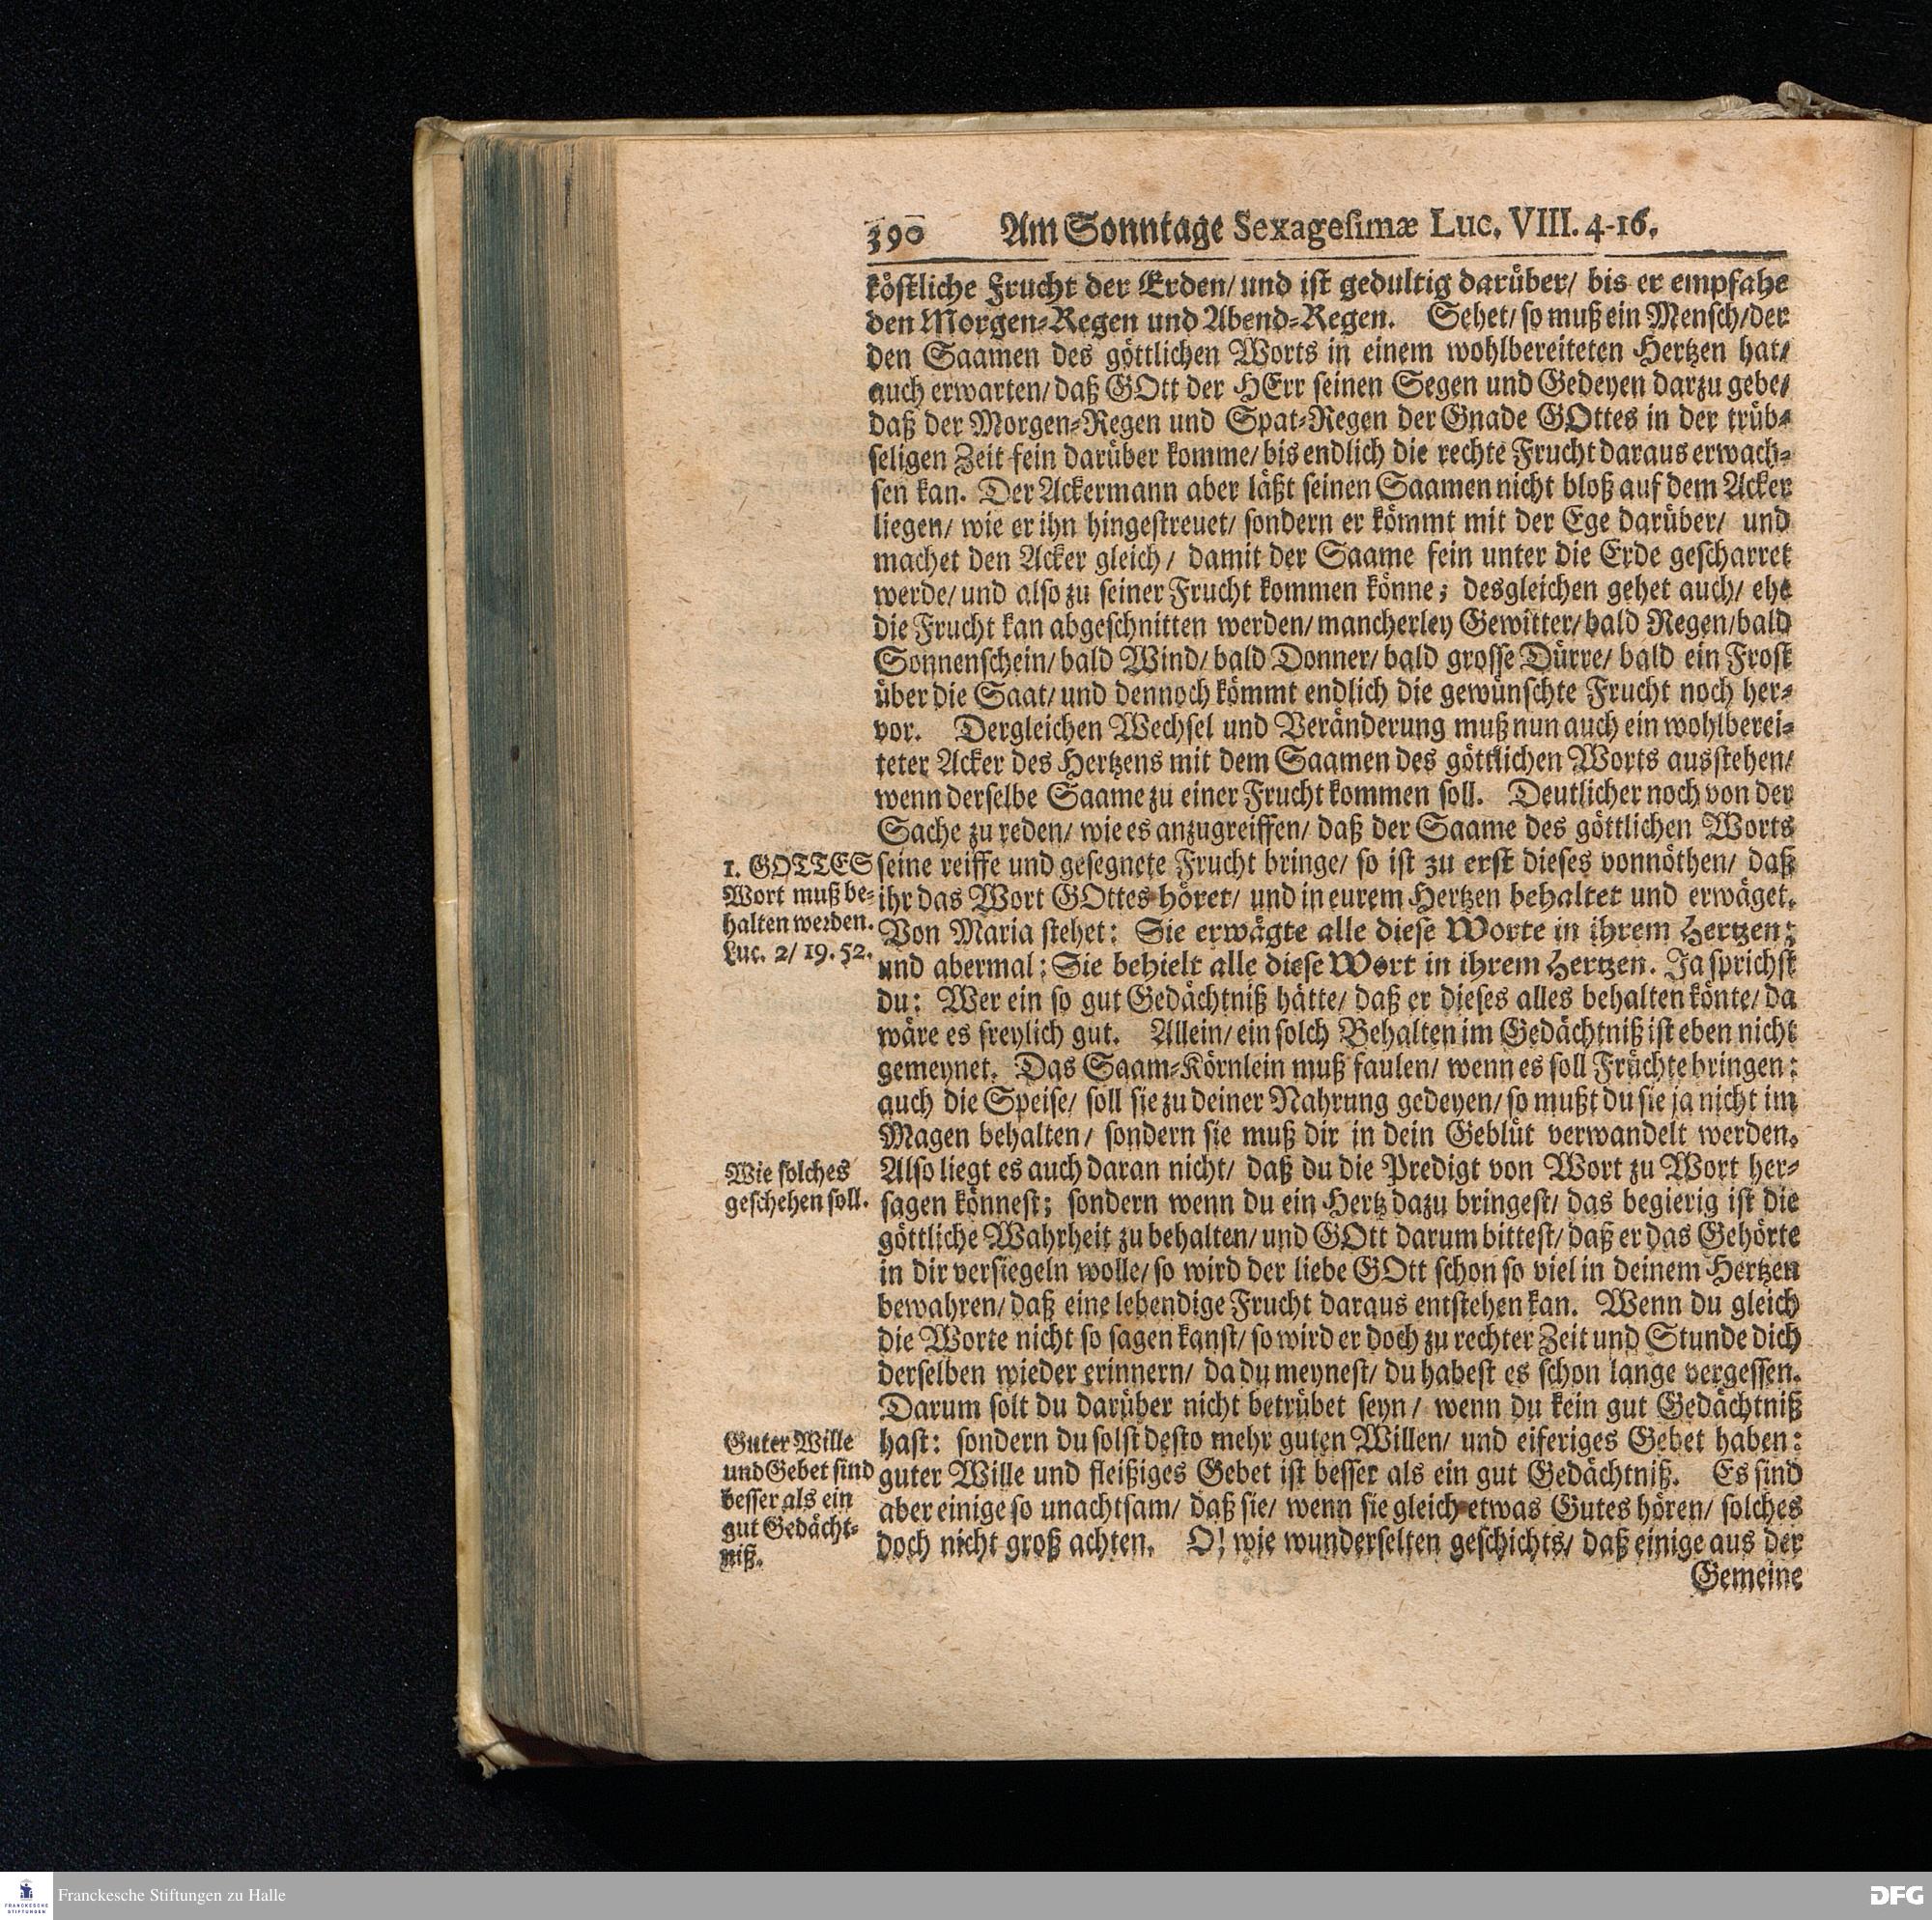 390 Am Sonntage Sexagesimæ Luc. VIII. 4-16.
köstliche Frucht der Erden/ und ist gedultig darüber/ bis er empfahe
den Morgen-Regen und Abend-Regen. Sehet/ so muß ein Mensch/ der
den Saamen des göttlichen Worts in einem wohlbereiteten Hertzen hat/
auch erwarten/ daß GOtt der HErr seinen Segen und Gedeyen darzu gebe/
daß der Morgen-Regen und Spat-Regen der Gnade GOttes in der trüb-
seligen Zeit fein darüber komme/ bis endlich die rechte Frucht daraus erwach-
sen kan. Der Ackermann aber läßt seinen Saamen nicht bloß auf dem Acker
liegen/ wie er ihn hingestreuet/ sondern er kömmt mit der Ege darüber/ und
machet den Acker gleich/ damit der Saame fein unter die Erde gescharret
werde/ und also zu seiner Frucht kommen könne; desgleichen gehet auch/ ehe
die Frucht kan abgeschnitten werden/ mancherley Gewitter/ bald Regen/ bald
Sonnenschein/ bald Wind/ bald Donner/ bald grosse Dürre/ bald ein Frost
über die Saat/ und dennoch kömmt endlich die gewünschte Frucht noch her-
vor. Dergleichen Wechsel und Veränderung muß nun auch ein wohlberei-
teter Acker des Hertzens mit dem Saamen des göttlichen Worts ausstehen/
wenn derselbe Saame zu einer Frucht kommen soll. Deutlicher noch von der
Sache zu reden/ wie es anzugreiffen/ daß der Saame des göttlichen Worts
seine reiffe und gesegnete Frucht bringe/ so ist zu erst dieses vonnöthen/ daß
ihr das Wort GOttes höret/ und in eurem Hertzen behaltet und erwäget.
Von Maria stehet: Sie erwägte alle diese Worte in ihrem Hertzen;
und abermal: Sie behielt alle diese Wort in ihrem Hertzen. Ja sprichst
du: Wer ein so gut Gedächtniß hätte/ daß er dieses alles behalten könte/ da
wäre es freylich gut. Allein/ ein solch Behalten im Gedächtniß ist eben nicht
gemeynet. Das Saam-Körnlein muß faulen/ wenn es soll Früchte bringen:
auch die Speise/ soll sie zu deiner Nahrung gedeyen/ so mußt du sie ja nicht im
Magen behalten/ sondern sie muß dir in dein Geblüt verwandelt werden.
Also liegt es auch daran nicht/ daß du die Predigt von Wort zu Wort her-
sagen könnest; sondern wenn du ein Hertz dazu bringest/ das begierig ist die
göttliche Wahrheit zu behalten/ und GOtt darum bittest/ daß er das Gehörte
in dir versiegeln wolle/ so wird der liebe GOtt schon so viel in deinem Hertzen
bewahren/ daß eine lebendige Frucht daraus entstehen kan. Wenn du gleich
die Worte nicht so sagen kanst/ so wird er doch zu rechter Zeit und Stunde dich
derselben wieder erinnern/ da du meynest/ du habest es schon lange vergessen.
Darum solt du darüber nicht betrübet seyn/ wenn du kein gut Gedächtniß
hast: sondern du solst desto mehr guten Willen/ und eiferiges Gebet haben:
guter Wille und fleißiges Gebet ist besser als ein gut Gedächtniß. Es sind
aber einige so unachtsam/ daß sie/ wenn sie gleich etwas Gutes hören/ solches
doch nicht groß achten. O! wie wunderselten geschichts/ daß einige aus der
Gemeine
1. GOTTES
Wort muß be-
halten werden.
Luc. 2/ 19. 52.
Wie solches
geschehen soll.
Guter Wille
und Gebet sind
besser als ein
gut Gedächt-
niß.
FRANCKESCHE
STIFTUNGEN
Franckesche Stiftungen zu Halle
DFG